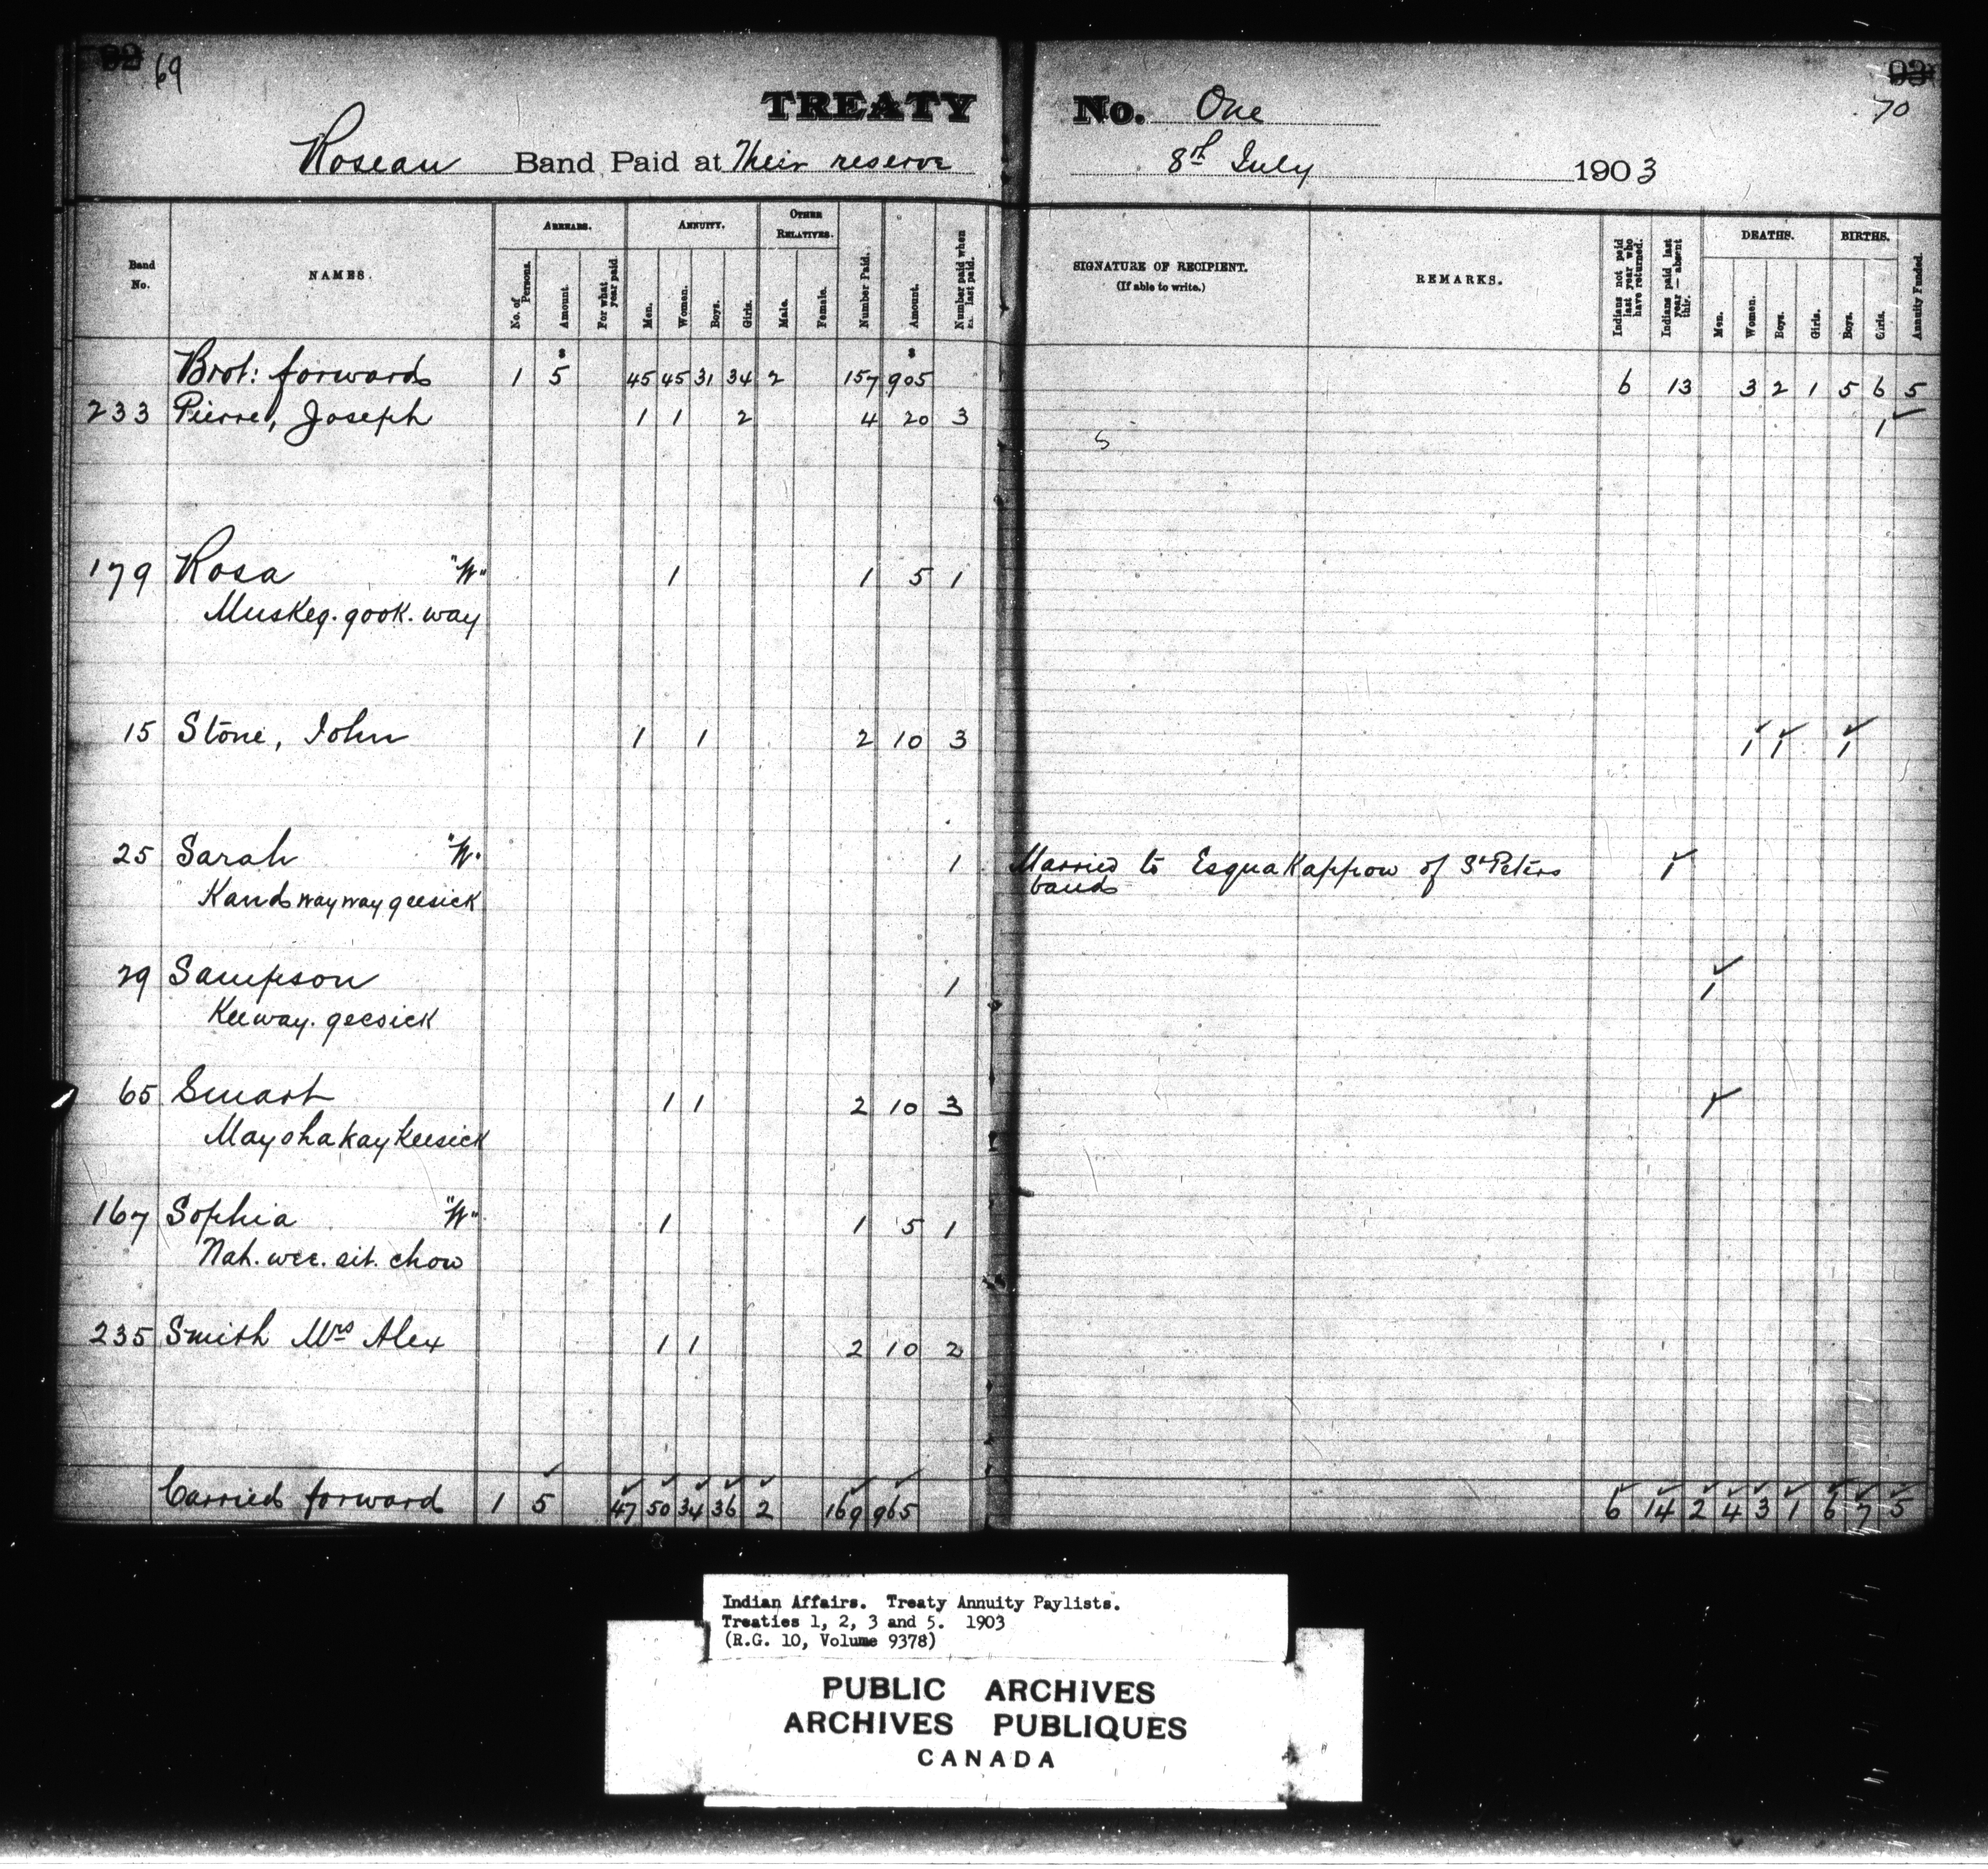 92 69
TREATY No. One
93 70
Roseau Band Paid at Their reserve 8th July 1903
Band No. NAMES. ARREARS. No. of Persons. Amount. For what year paid ANNUITY. Men. Women. Boys. Girls. OTHER RELATIVES. Male. Female. Number Paid. Amount. Number paid when last paid. SIGNATURE OF RECIPIENT. (If able to write.) REMARKS. Indians not paid last year who have returned. Indians paid last year — absent this. DEATHS. Men. Women. Boys. Girls. BIRTHS. Boys. Girls. Annuity Funded.
Brot: forward 1 5 45 45 31 34 2 157 905 6 13 3 2 1 5 6 5
233 Pierre, Joseph 1 1 2 4 20 3 1
179 Rosa "W" 1 1 5 1
Muskeg.gook.way
15 Stone, John 1 1 2 10 3 1 1 1
25 Sarah "W" 1 Married to EsquaKappow of St Peters 1
Kandwaywaygeesick band
29 Sampson 1 1
Keeway.geesick
65 Smart 1 1 2 10 3 1
MayohakayKeesick
167 Sophia "W" 1 1 5 1
Nah.wee.sit.chow
235 Smith Mrs Alex 1 1 2 10 2
Carried forward 1 5 47 50 34 36 2 169 965 6 14 2 4 3 1 6 7 5
Indian Affairs. Treaty Annuity Paylists.
Treaties 1, 2, 3 and 5. 1903
(R.G. 10, Volume 9378)
PUBLIC ARCHIVES
ARCHIVES PUBLIQUES
CANADA